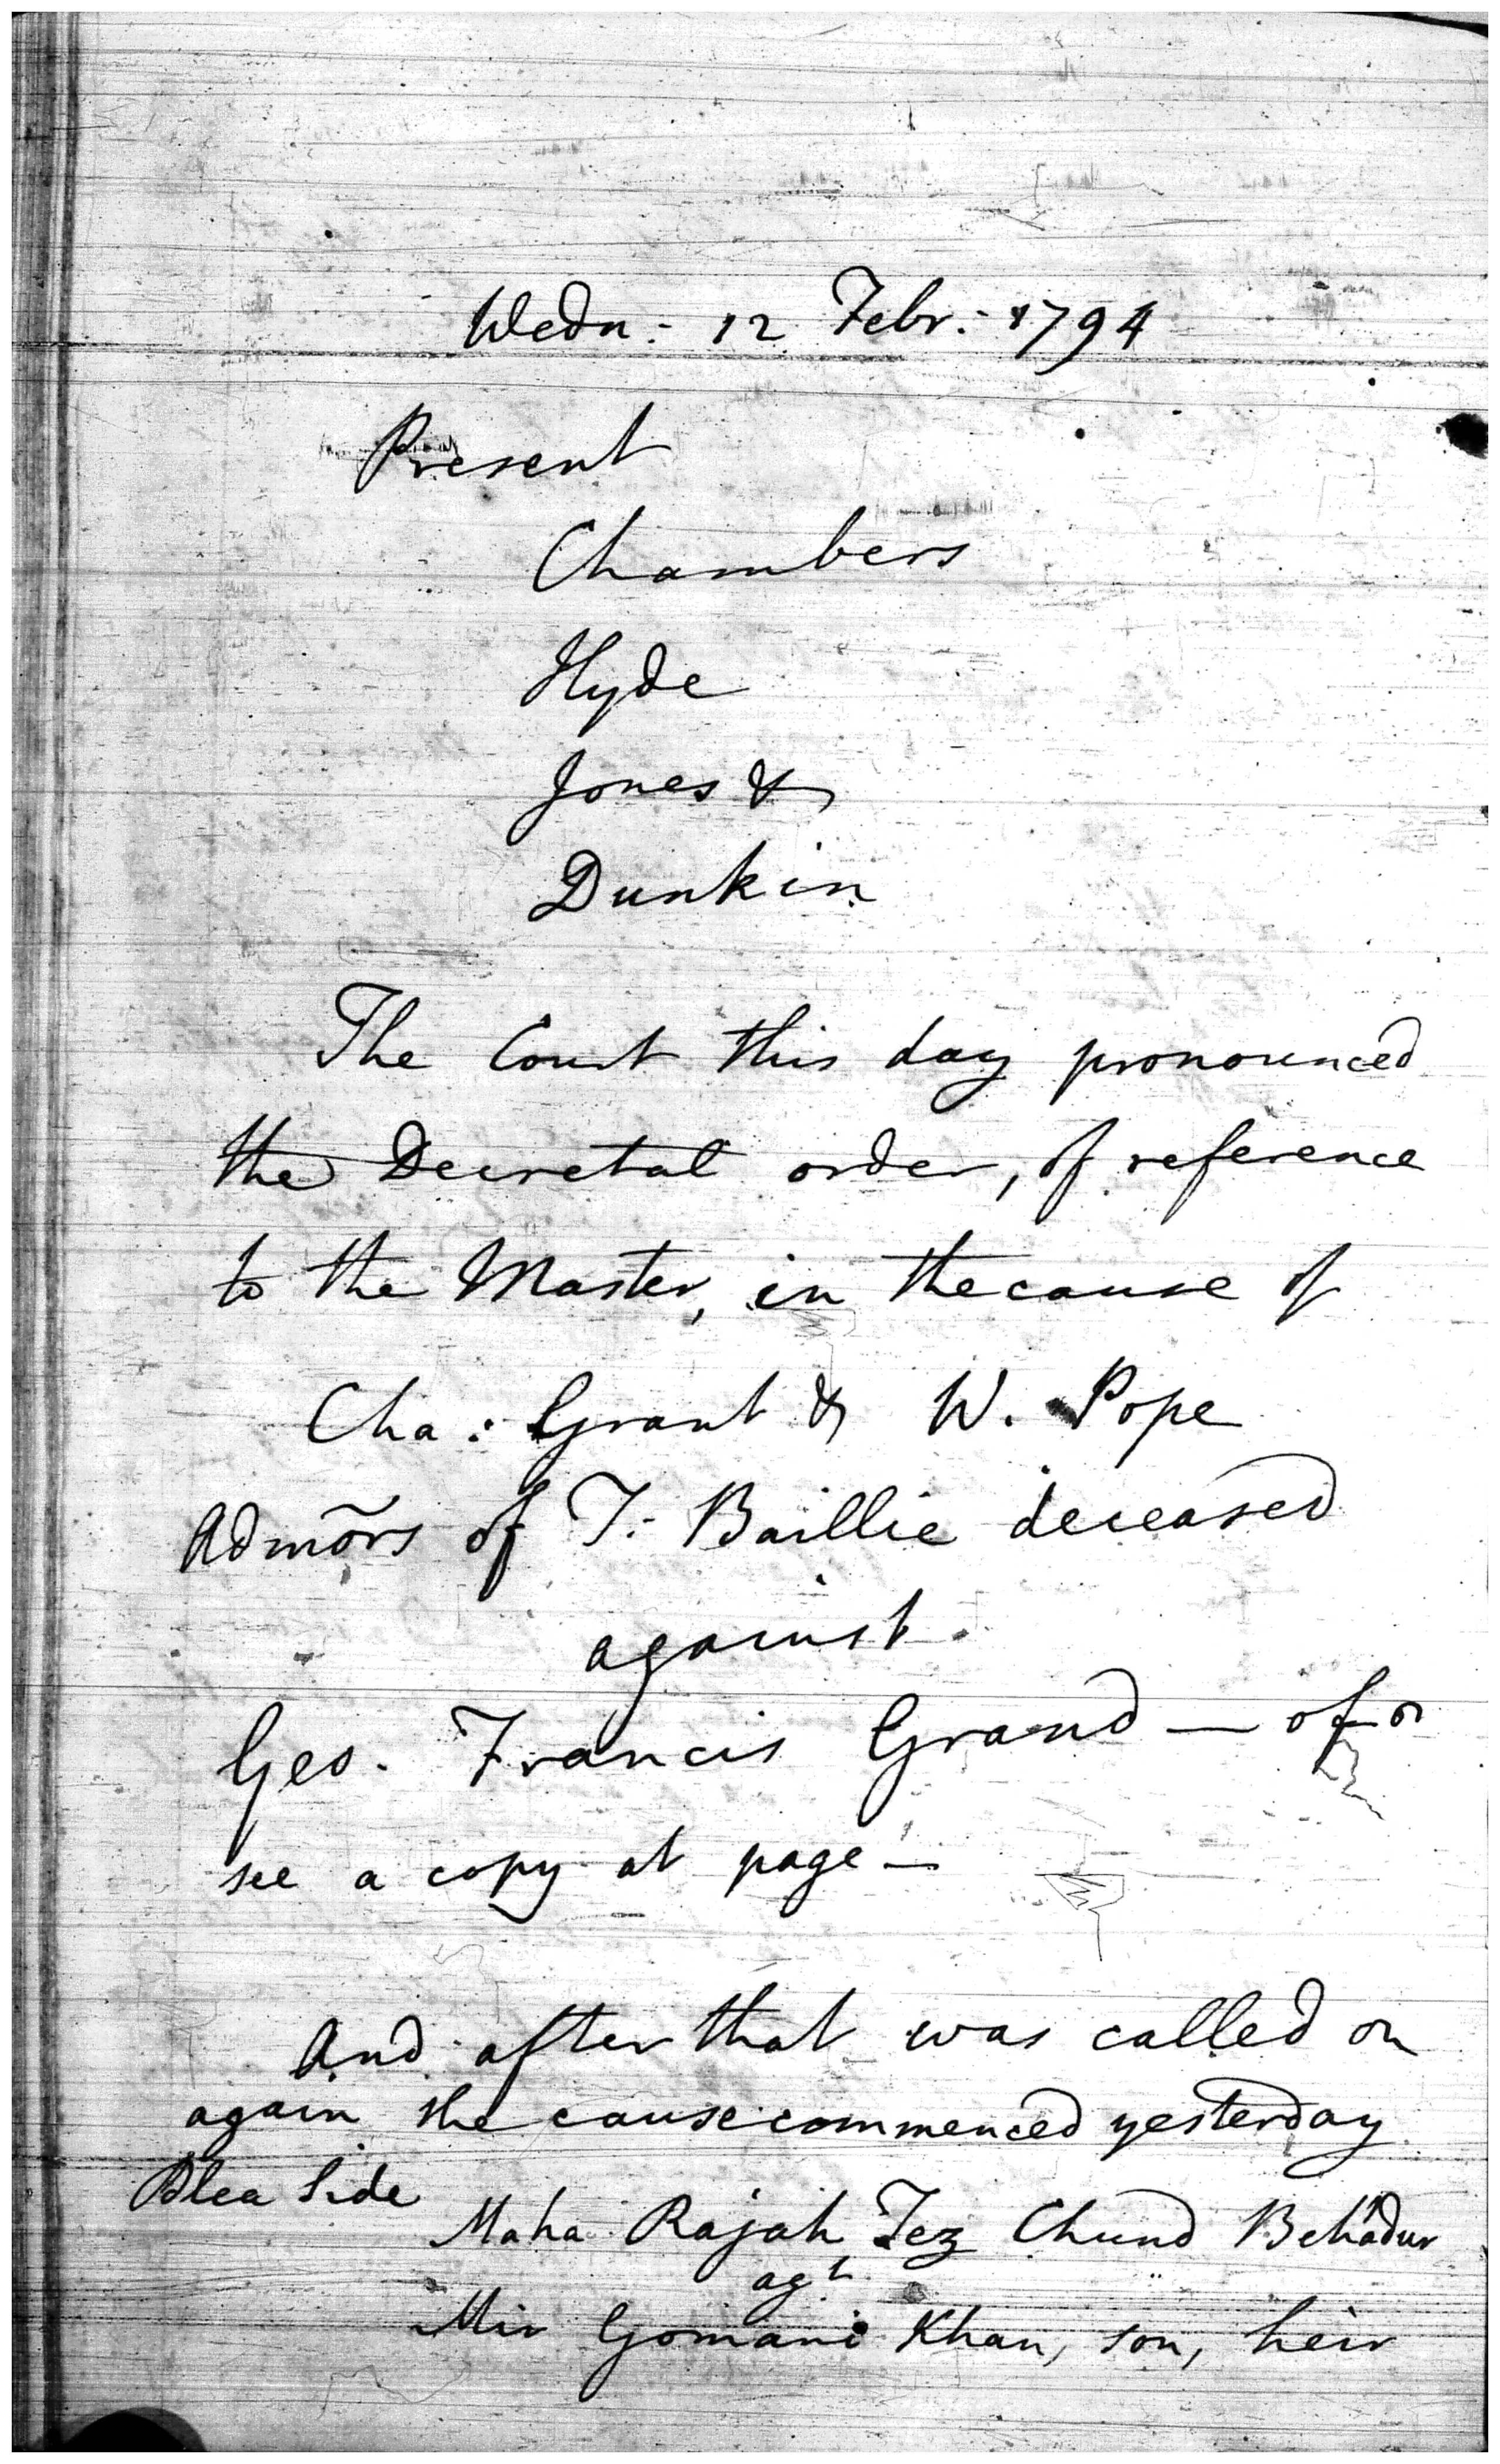 Wedn:- 12 Febr:- 1794
Present
Chambers
Hyde
Jones &
Dunkin
The Court this day pronounced
the Decretal order, of reference
to the Master, in the cause of
Cha: Grant & W. Pope
Admõrs of T:- Baillie deceased
against
Geo. Francis Grand — of
see a copy at page —
And after that was called on
again the cause commenced yesterday
Plea Side
Maha Rajah Tez Chund Behadur
agt.
Mir Gomani Khan, son, heir